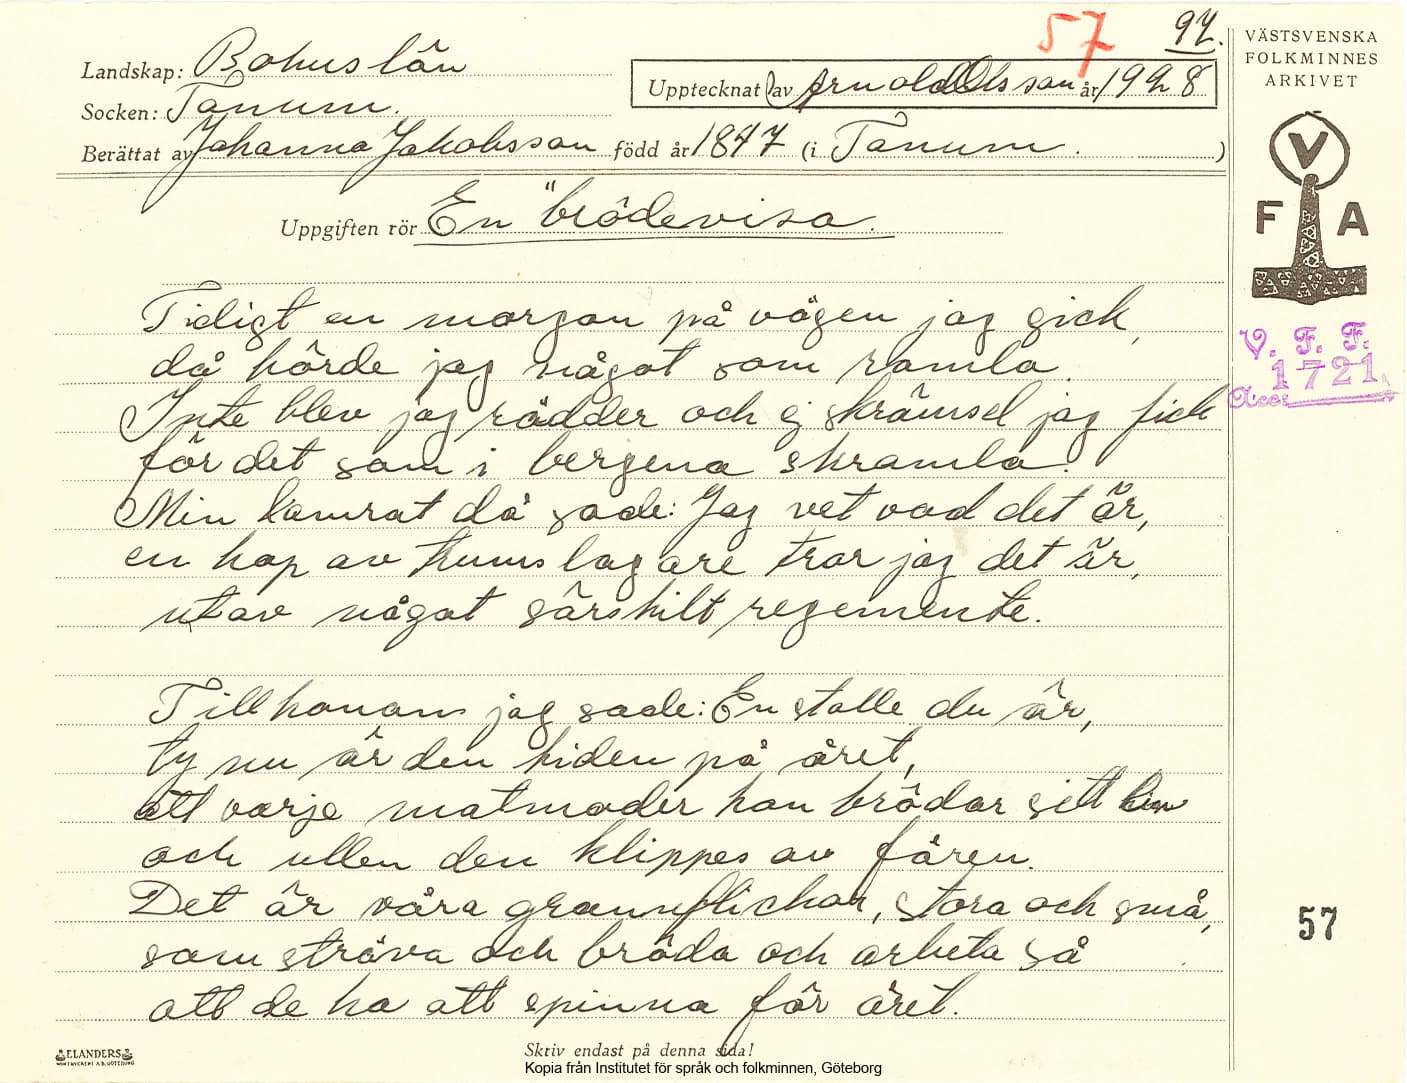 57 97.
Landskap: Bohuslän
Upptecknat av Arnold Olsson år 1928
Socken: Tanum.
Berättat av Johanna Jakobsson född år 1847 (i Tanum. )
Uppgiften rör En "brödevisa.
Tidigt en morgon på vägen jag gick,
då hörde jag något som ramla.
Inte blev jag rädder och ej skrämsel jag fick
för det som i bergena skramla.
Min kamrat då sade: Jag vet vad det är,
en hop av trumslagare tror jag det är,
utav något särskilt regemente.
Till honom jag sade: En stolle du är,
ty nu är den tiden på året,
att varje matmoder hon brödar sitt lin
och ullen den klippes av fåren.
Det är våra grannflickor, stora och små,
som sträva och bröda och arbeta så
att de ha att spinna för året.
ELANDERS
Skriv endast på denna sida!
Kopia från Institutet för språk och folkminnen, Göteborg
VÄSTSVENSKA
FOLKMINNES
ARKIVET
V
F A
V. F. F.
1721
Acces
57